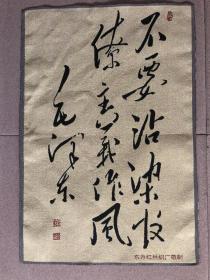 不要沾染官
僚主義作风
毛泽东
东方红丝织厂敬制